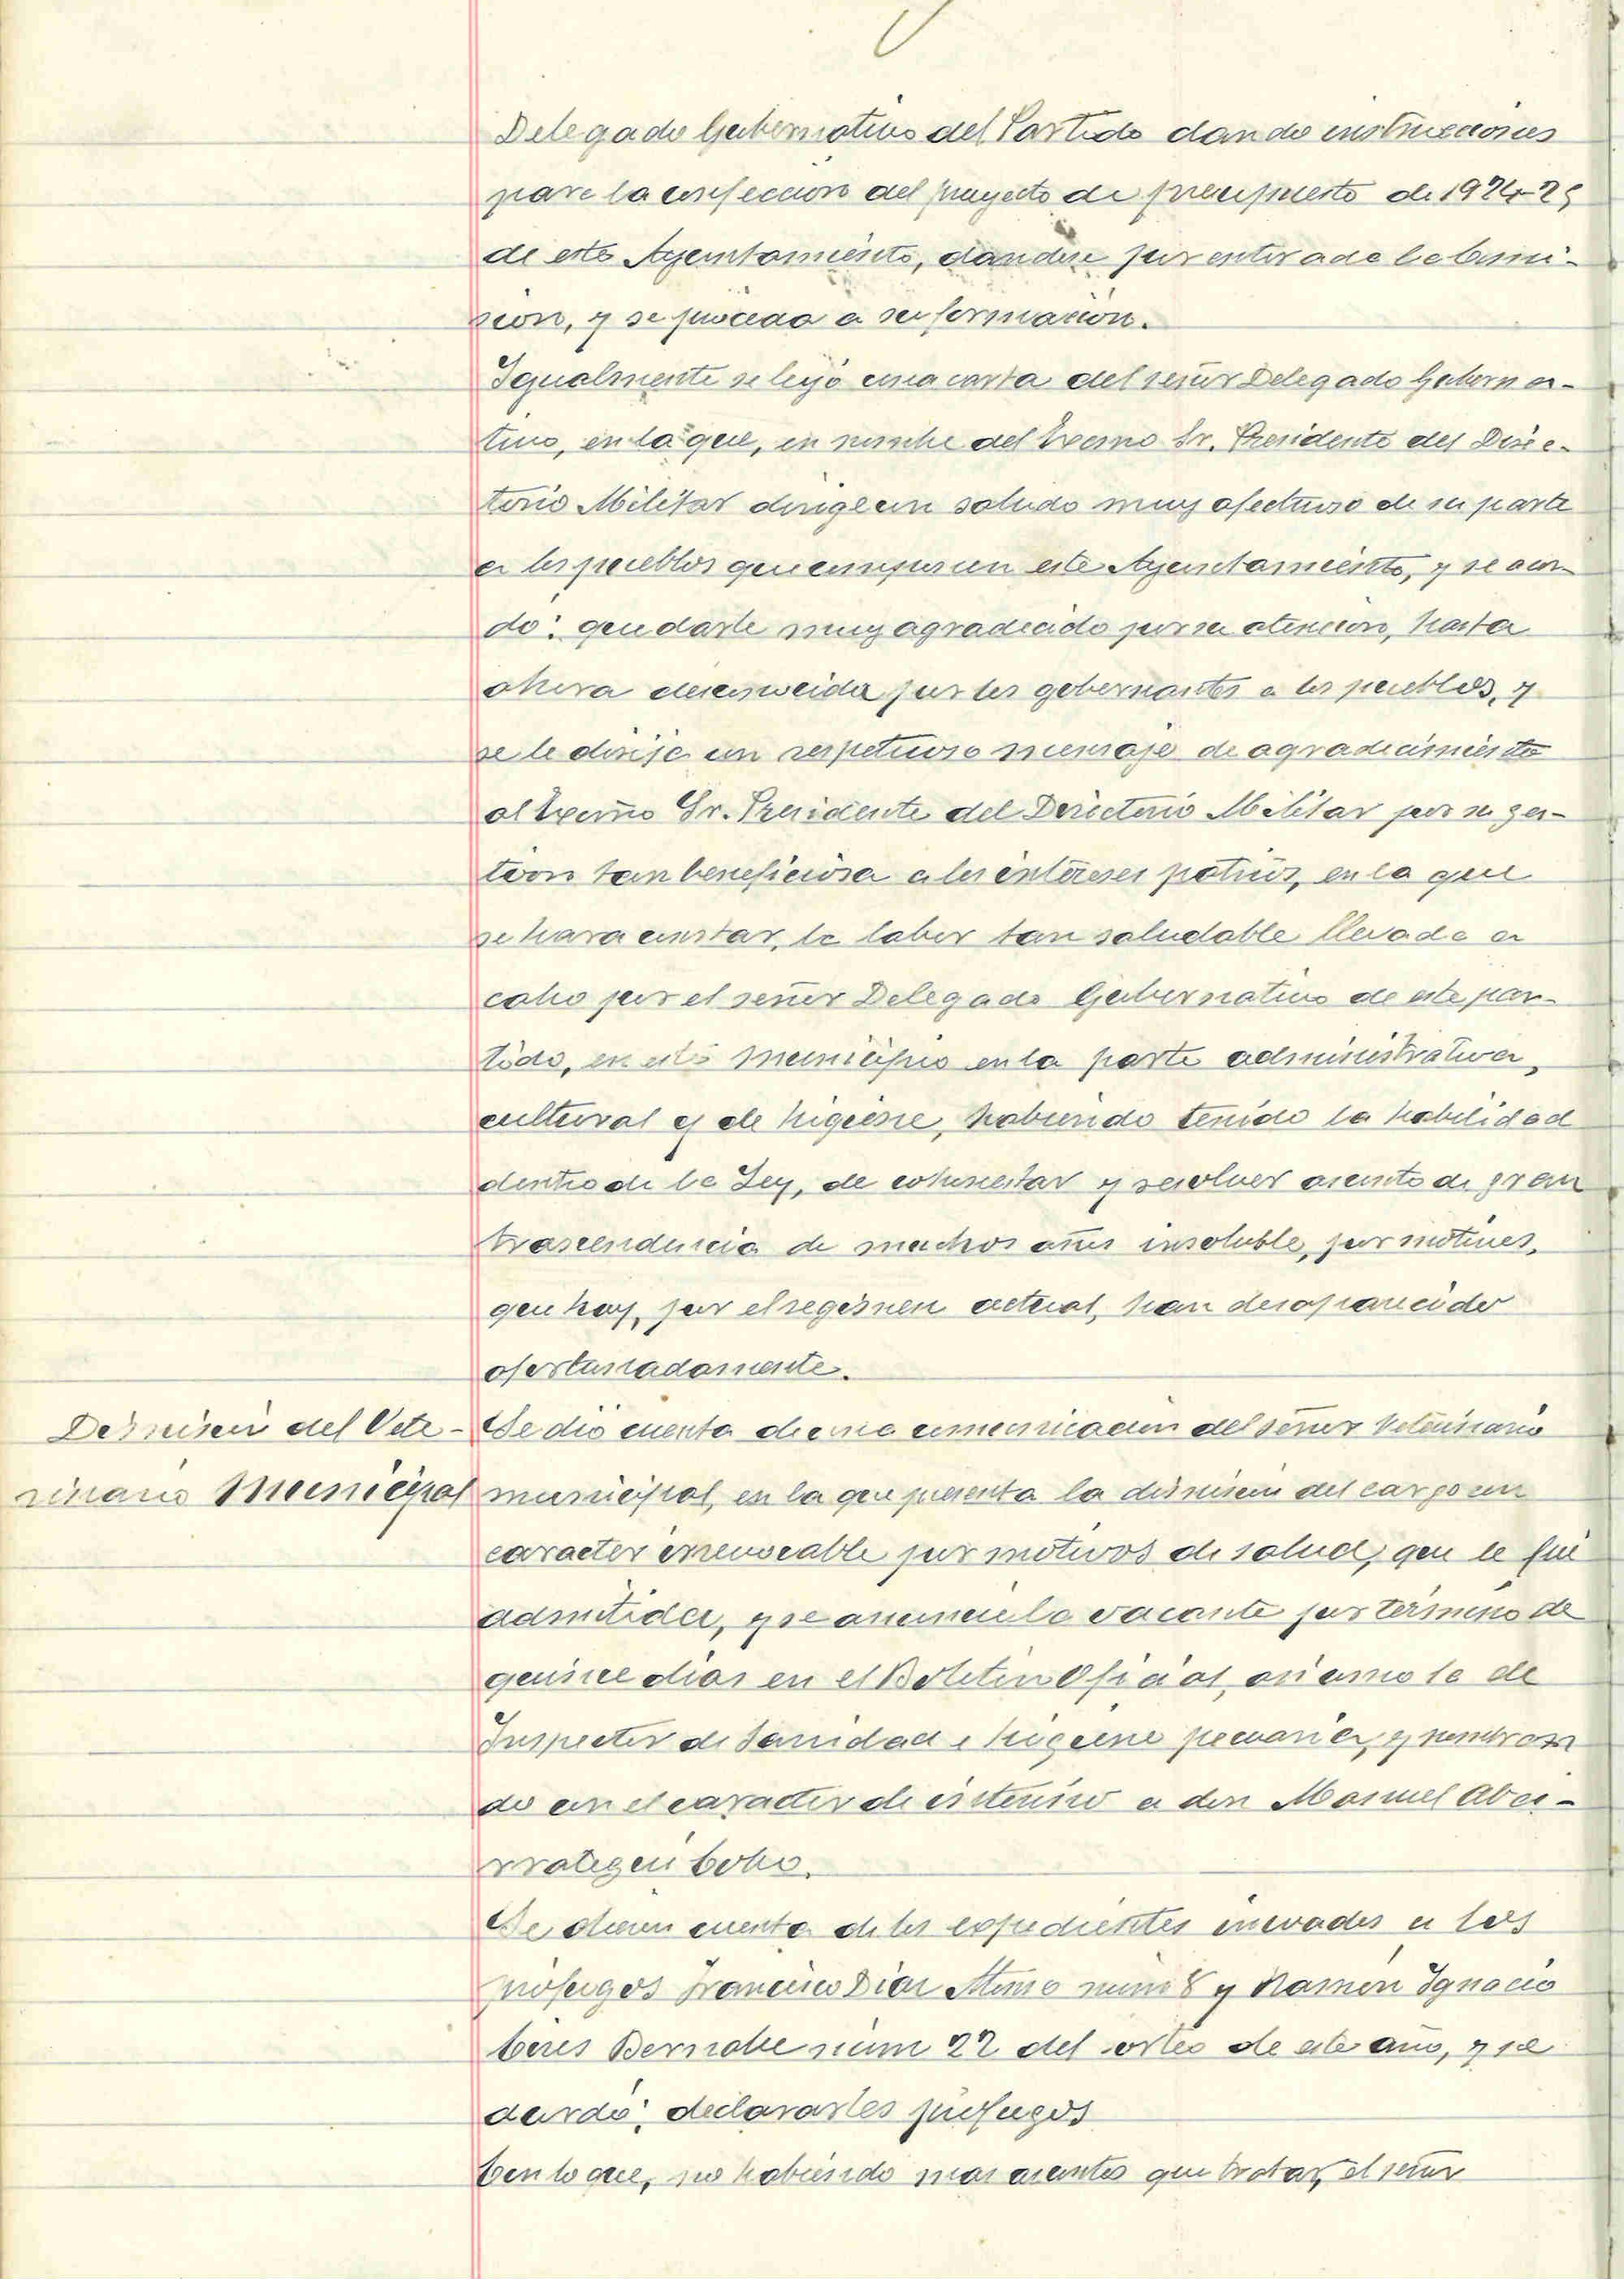 Delegado Gubernativo del Partido dando instrucciones
para la confección del proyecto de presupuesto de 1924-25
de este Ayuntamiento, dandose por enterada la Comi-
sion, y se proceda a su formación.
Igualmente se leyó una carta del señor Delegado Guberna-
tivo, en la que, en nombre del Excmo Sr. Presidente del Direc-
torio Militar dirige un saludo muy afectuoso de su parte
a los pueblos que componen este Ayuntamiento, y se acor-
dó: quedarle muy agradecido por su atencion, hasta
ahora desconocida por los gobernantes a los pueblos, y
se le dirija un respetuoso mensaje de agradecimiento
al Excmo Sr. Presidente del Directorio Militar por su ges-
tion tan beneficiosa a los intereses patrios, en la que
se hara constar, la labor tan saludable llevada a
cabo por el señor Delegado Gubernativo de este par-
tido, en este Municipio en la parte administrativa,
cultural y de higiene, habiendo tenido la habilidad
dentro de la Ley, de cohonestar y resolver asunto de gran
trascendencia de muchos años insoluble, por motivos,
que hoy, por el regimen actual, han desaparecido
afortunadamente.
Dimision del Vete-
rinario Municipal
Se dió cuenta de una comunicacion del señor Veterinario
municipal, en la que presenta la dimision del cargo con
caracter irrevocable por motivos de salud, que le fué
admitida, y se anuncie la vacante por término de
quince dias en el Boletin Oficial, asi como la de
Inspector de Sanidad e higiene pecuaria, y nombran
do con el caracter de interino a don Manuel Abei-
rratigui Cobo.
Se dieron cuenta de los expedientes incoados a los
prófugos Francisco Diaz Alonso num 8 y Ramón Ignacio
Ceres Bernabe num 22 del sorteo de este año, y se
acordó: declararles prófugos
Con lo que, no habiendo mas asuntos que tratar, el señor